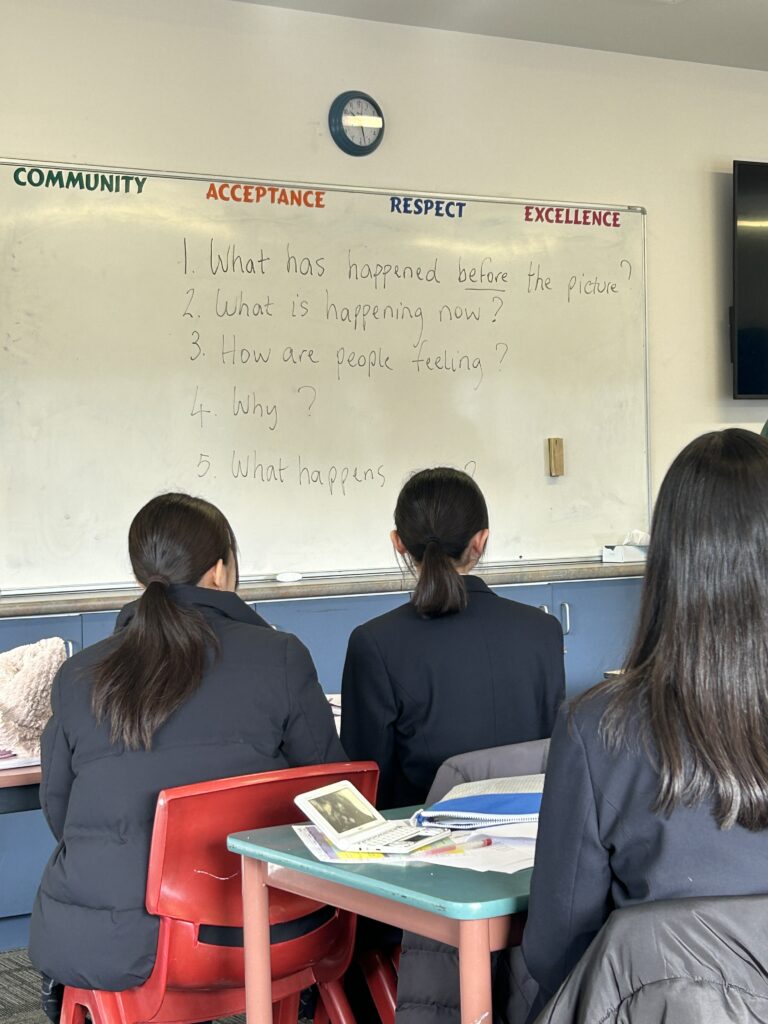 COMMUNITY ACCEPTANCE RESPECT EXCELLENCE
1. What has happened before the picture?
2. What is happening now?
3. How are people feeling?
4. Why?
5. What happens ?